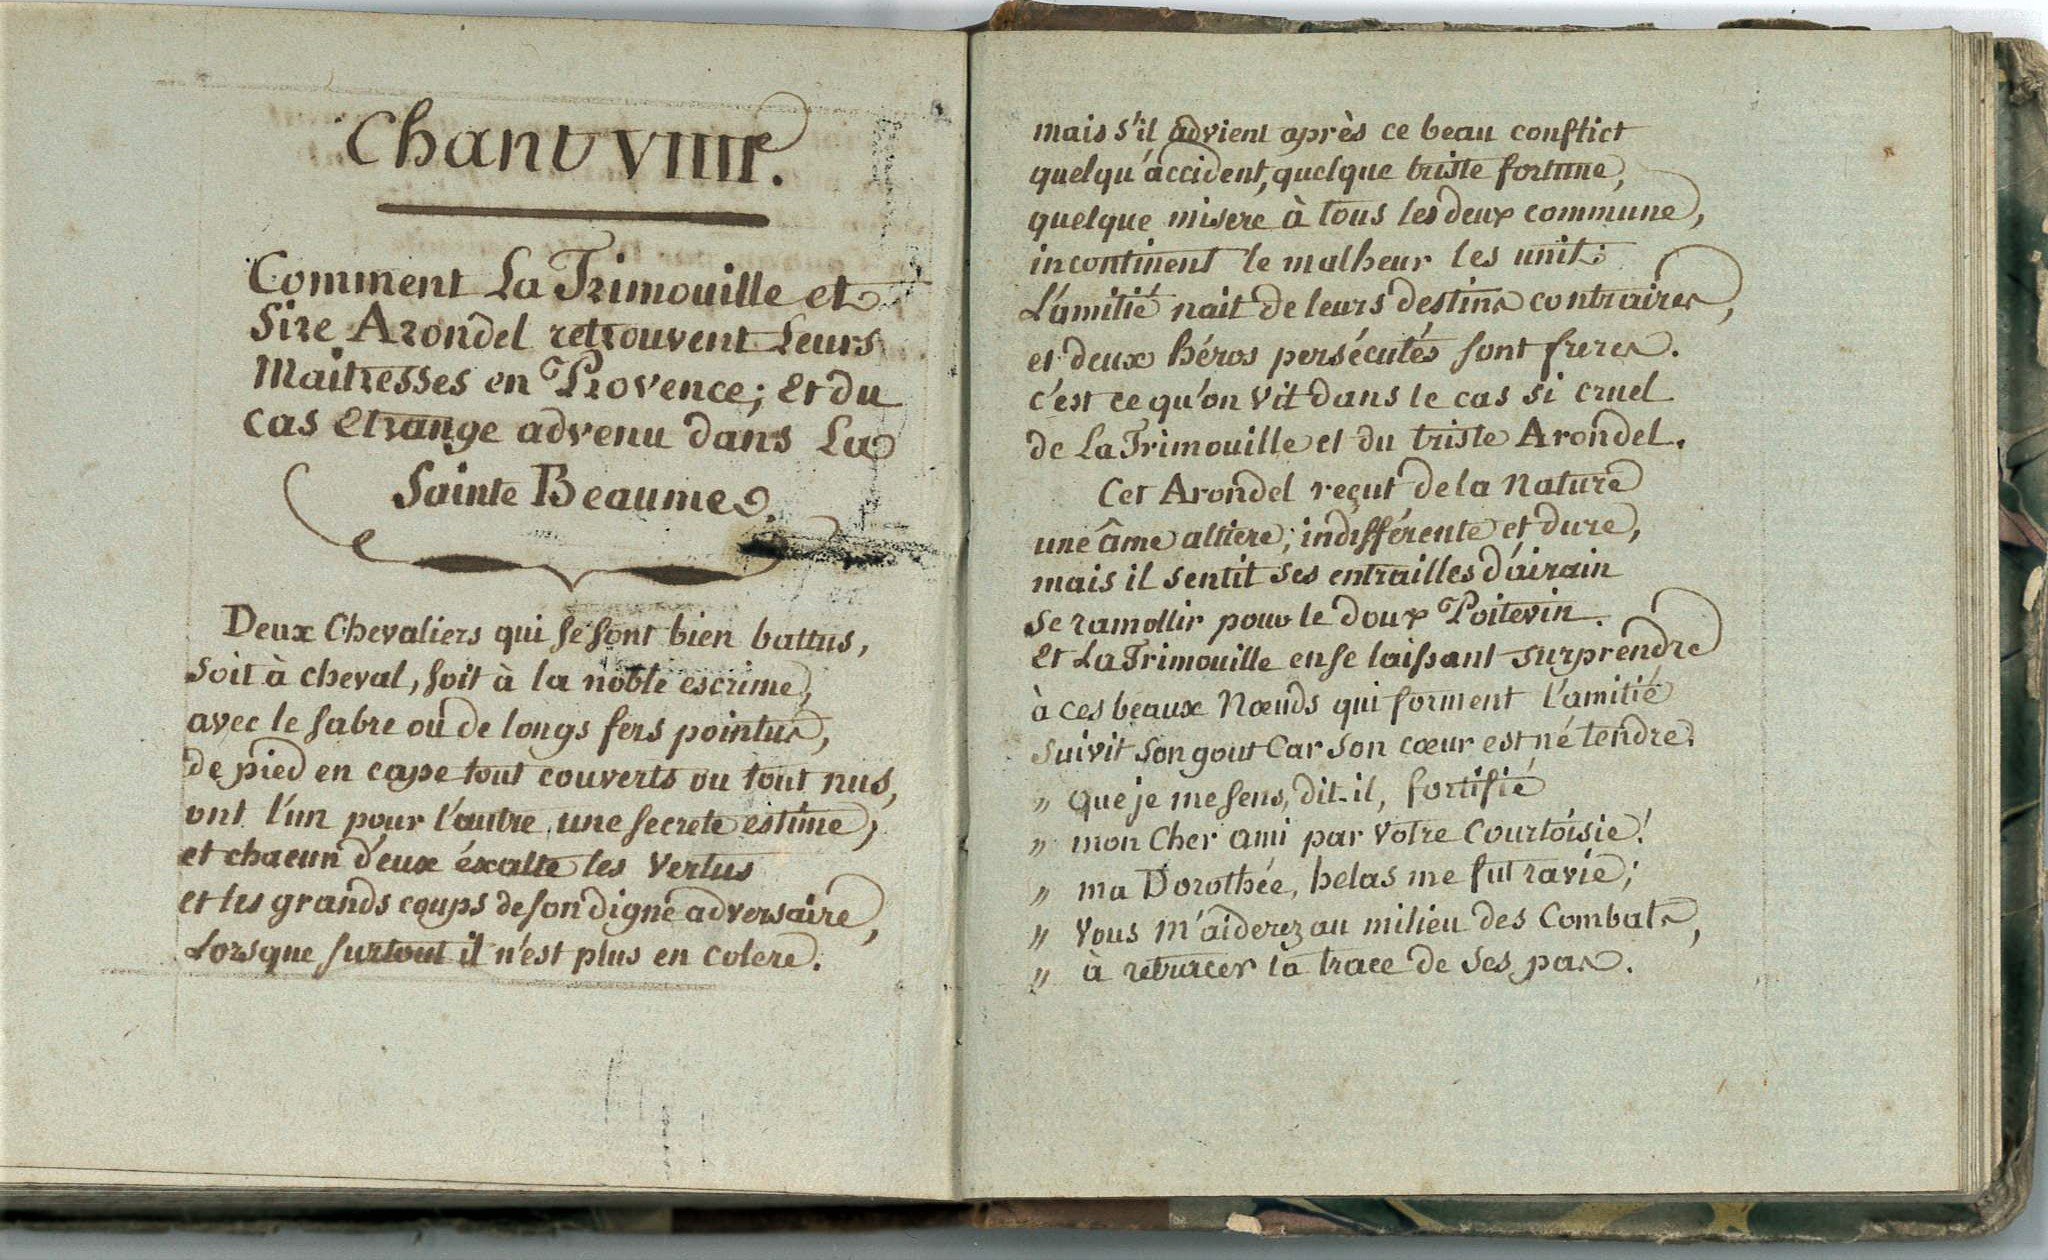 Chant VIIII.
Comment La Trimouille et
Sire Arondel retrouvent Leurs
Maitresses en Provence; Et du
cas Etrange advenu dans La
Sainte Beaume.
Deux Chevaliers qui se sont bien battus,
Soit à cheval, soit à la noble escrime,
avec le sabre ou de longs fers pointus,
de pied en cape tout couverts ou tout nus,
ont l'un pour l'autre une secrete estime;
et chacun d'eux éxalte les Vertus
et les grands coups de son digne adversaire,
Lorsque surtout il n'est plus en colere.
mais s'il advient après ce beau conflict
quelqu'accident, quelque triste fortune,
quelque misere à tous les deux commune,
incontinent le malheur les unit:
L'amitié nait de leurs destins contraires,
et deux héros persécutés sont freres.
c'est ce qu'on vit dans le cas si cruel
de La Trimouille et du triste Arondel.
Cet Arondel reçut de la Nature
une âme altiere, indifférente et dure,
mais il sentit ses entrailles d'airain
se ramollir pour le doux Poitevin.
Et La Trimouille en se laissant surprendre
à ces beaux Nœuds qui forment l'amitié
Suivit son gout Car son cœur est né tendre.
" que je me sens, dit-il, fortifié
" mon Cher ami par votre Courtoisie!
" ma Dorothée, helas me fut ravie;
" Vous m'aiderez au milieu des Combats,
" à retracer la trace de ses pas.